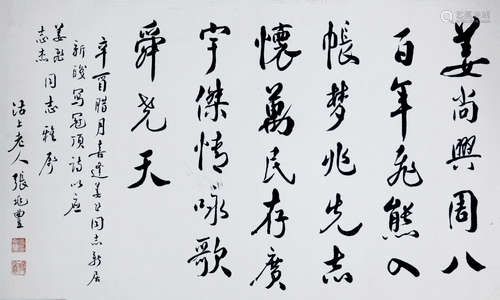 姜尚興周八
百年飛熊入
帳梦兆先志
懷萬民存廣
宇傑情咏歌
舜尭天
辛酉腊月喜逢姜公同志新居
新峻写冠頂詩以应
姜飛
志杰同志雅屬
沽上老人張兆豐